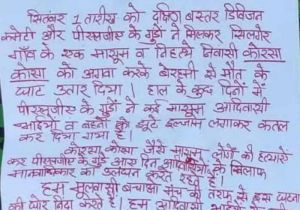 सितंबर 1 तारीख को दक्षिण बस्तर डिविजन
कमेटी और पीएलजीए के गुंडो ने मिलकर सिलगेर
गाँव के एक मासूम व निहत्थे निवासी कोरसा
कोसा को अगवा करके बेरहमी से मौत के
घाट उतार दिया। हाल के कुछ दिनों से
पीएलजीए के गुंडो ने कई मासूम आदिवासी
भाईयो व बहनो झूटे इल्जाम लगाकर कतल
कर दिया गया है।
कोरसा कोसा जैसे मासूम लोगों की हत्या
कर पीएलजीए के गुंडे आए दिन आदिवासियो के खिलाफ
मानवाधिकार का उलंघन करते रहते है।
हम मूलवासी बचाओ मंच की तरफ से इस घटना
की घोर निंदा करते है। हम आदिवासी